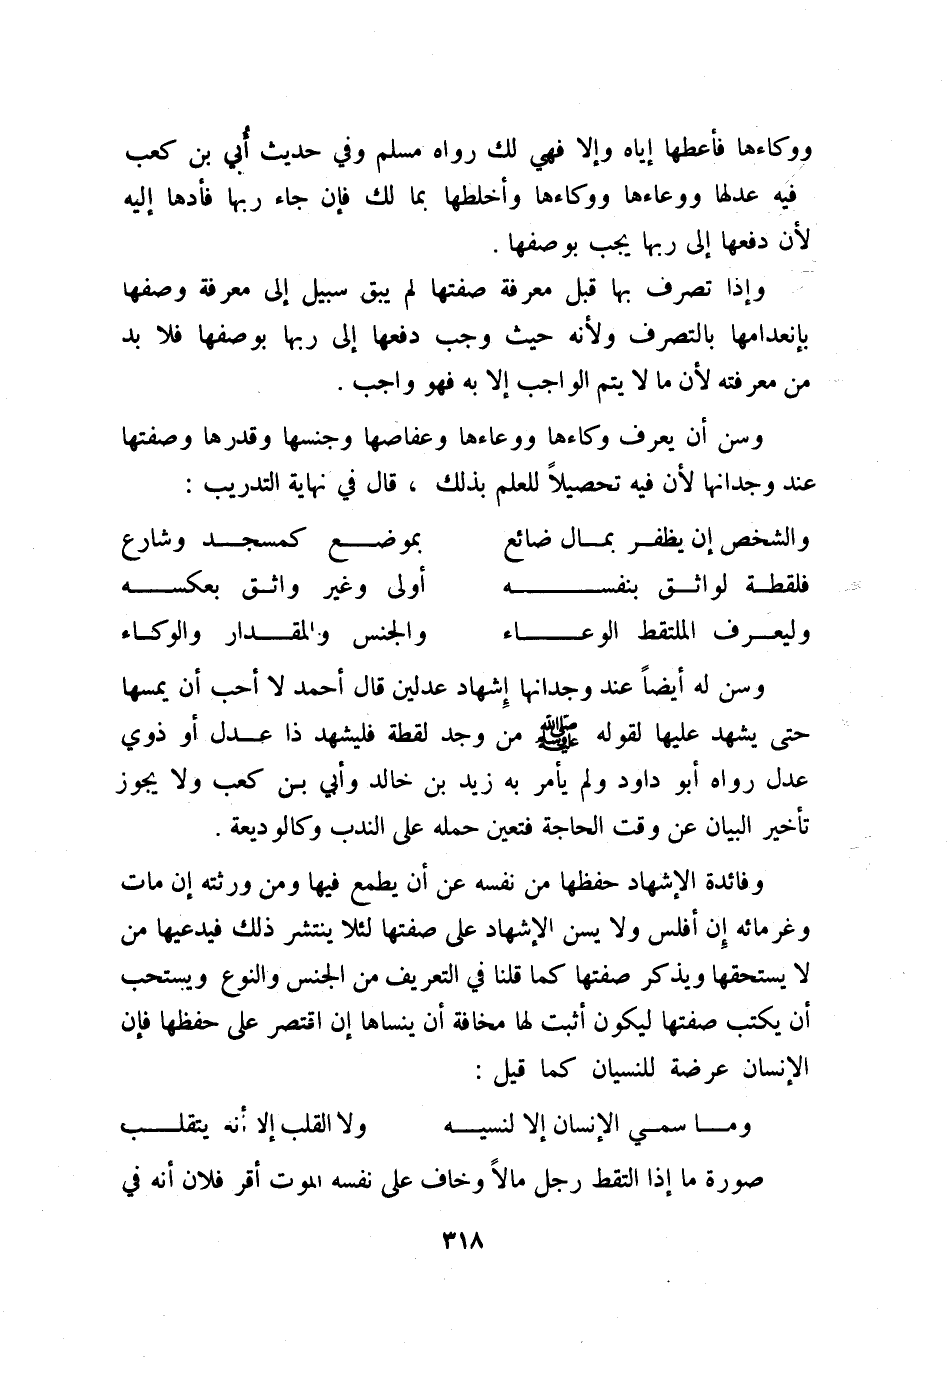 ووكاءها فأعطها إياه وإلا فهي لك رواه مسلم وفي حديث أُبي بن كعب
فيه عدلها ووعاءها ووكاءها وأخلطها بما لك فإن جاء ربها فأدها إليه
لأن دفعها إلى ربها يجب بوصفها .
وإذا تصرف بها قبل معرفة صفتها لم يبق سبيل إلى معرفة وصفها
بإنعدامها بالتصرف ولأنه حيث وجب دفعها إلى ربها بوصفها فلا بد
من معرفته لأن ما لا يتم الواجب إلا به فهو واجب .
وسن أن يعرف وكاءها ووعاءها وعفاصها وجنسها وقدرها وصفتها
عند وجدانها لأن فيه تحصيلاً للعلم بذلك ، قال في نهاية التدريب :
والشخص إن يظفـر بمـال ضائع بموضـع كمسجـد وشارع
فلقطـة لواثـق بنفسـه أولى وغير واثـق بعكسـه
وليعـرف الملتقط الوعـاء والجنس والمقـدار والوكـاء
وسن له أيضاً عند وجدانها إشهاد عدلين قال أحمد لا أحب أن يمسها
حتى يشهد عليها لقوله ﷺ من وجد لقطة فليشهد ذا عـدل أو ذوي
عدل رواه أبو داود ولم يأمر به زيد بن خالد وأبي بـن كعب ولا يجوز
تأخير البيان عن وقت الحاجة فتعين حمله على الندب وكالوديعة .
وفائدة الإشهاد حفظها من نفسه عن أن يطمع فيها ومن ورثته إن مات
وغرمائه إن أفلس ولا يسن الإشهاد على صفتها لئلا ينتشر ذلك فيدعيها من
لا يستحقها ويذكر صفتها كما قلنا في التعريف من الجنس والنوع ويستحب
أن يكتب صفتها ليكون أثبت لها مخافة أن ينساها إن اقتصر على حفظها فإن
الإنسان عرضة للنسيان كما قيل :
ومـا سمـي الإنسان إلا لنسيـه ولا القلب إلا أنه يتقلـب
صورة ما إذا التقط رجل مالاً وخاف على نفسه الموت أقر فلان أنه في
٣١٨